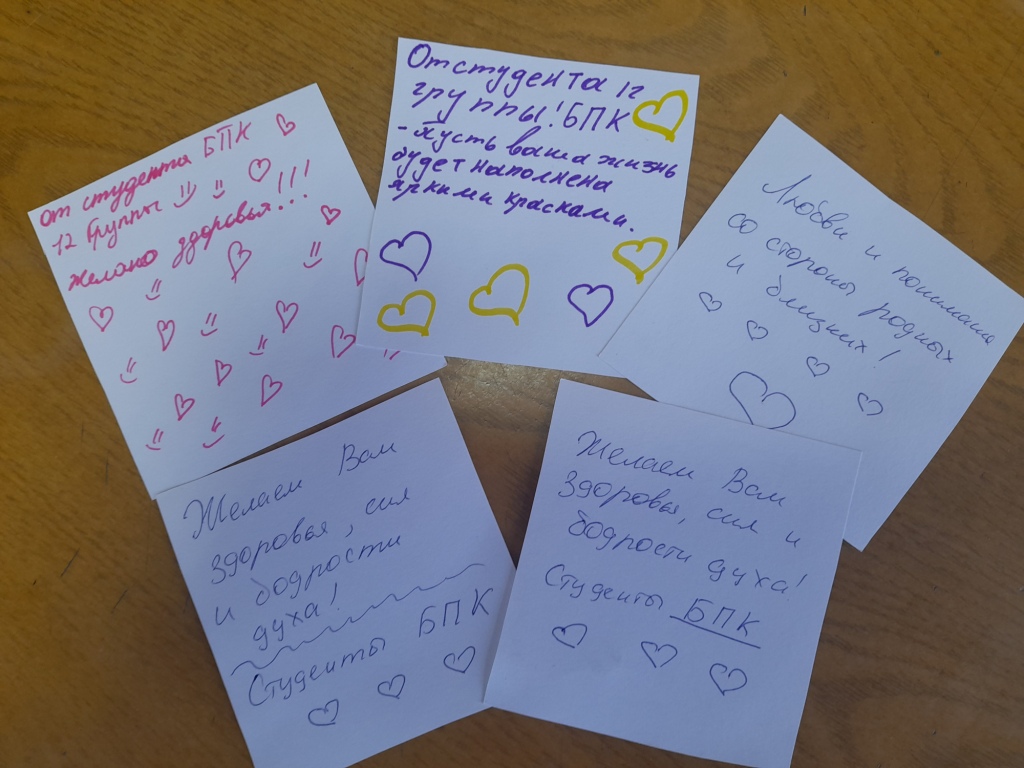 От студента БПК
12 группы
желаю здоровья!!!
От студента 12
группы! БПК
- пусть ваша жизнь
будет наполнена
яркими красками.
Любви и понимания
со стороны родных
и близких!
Желаем Вам
здоровья, сил
и бодрости
духа!
Студенты БПК
Желаем Вам
здоровья, сил и
бодрости духа!
Студенты БПК